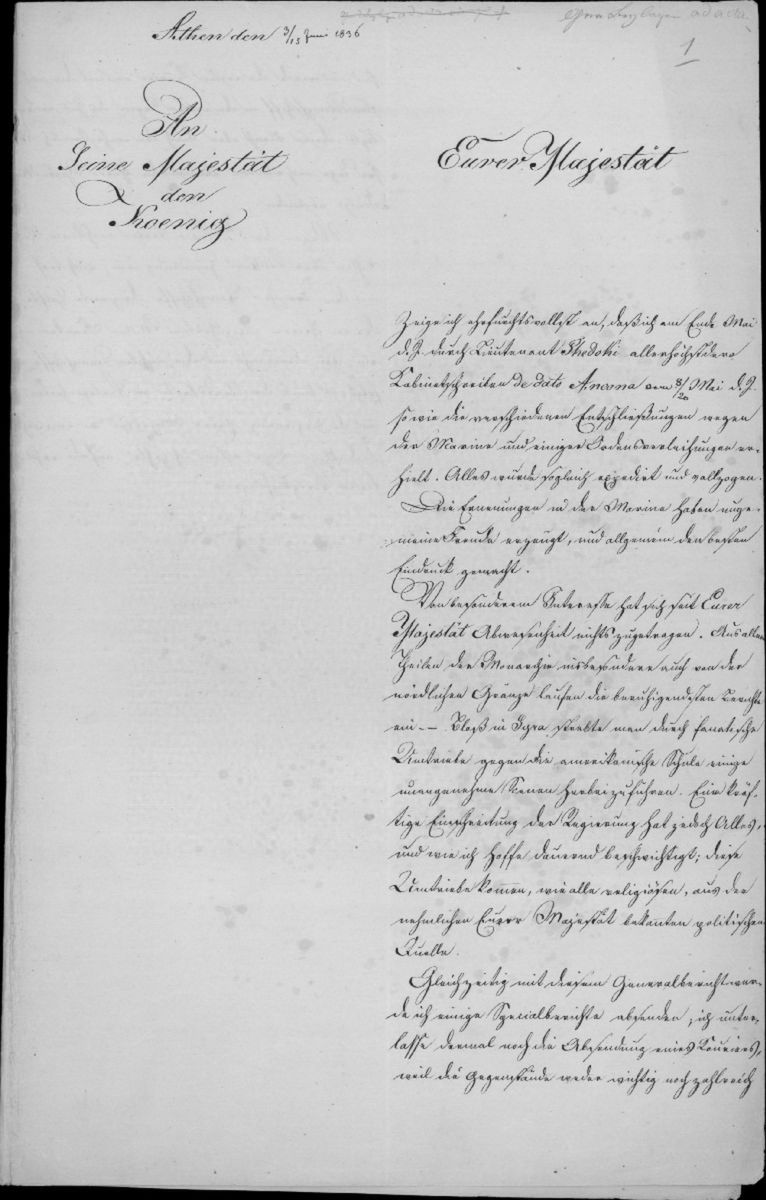 Athen den 3/15 Juni 1836
ad acta
1
An
Seine Majestät
den
Koenig
Eurer Majestät
Zeige ich ehrfurchtsvollst an, daß ich am Ende Mai
d. J. durch Lieutenant allerhöchstdero
Kabinetschreiben de dato Ancona vom 8/20 Mai d. J.
so wie die verschiedenen Entschließungen wegen
der Marine und einiger Ordensverleihungen er-
hielt. Alles wurde sogleich expedirt und vollzogen.
Die Ernenungen in der Marine haben unge-
meine Freude erzeugt, und allgemein den besten
Eindruck gemacht.
Von besonderem Interesse hat sich seit Eurer
Majestät Abwesenheit nichts zugetragen. Aus allen
Theilen der Monarchie insbesondere auch von der
nördlichen Gränze laufen die beruhigendesten Berichte
ein. — Bloß in Syra strebte man durch fanatische
Umtriebe gegen die amerikanische Schule einige
unangenehme Scenen herbeizuführen. Eine kräf-
tige Einschreitung der Regierung hat jedoch Alles,
und wie ich hoffe dauernd beschwichtigt; diese
Umtriebe komen, wie alle religiösen, aus der
nehmlichen Eurer Majestät bekanten politischen
Quelle.
Gleichzeitig mit diesem Generalbericht wer-
de ich einige Specialberichte absenden; ich unter-
lasse dermal noch die Absendung eines Kouriers,
weil die Gegenstände weder wichtig noch zahlreich